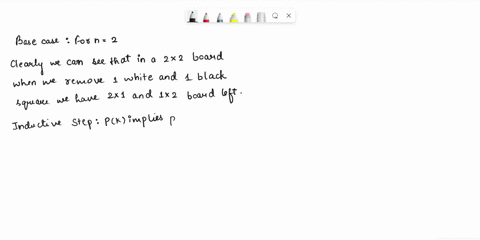 Base case : for n = 2
Clearly we can see that in a 2×2 board
when we remove 1 white and 1 black
square we have 2×1 and 1×2 board left.
Inductive Step : P(K) implies p